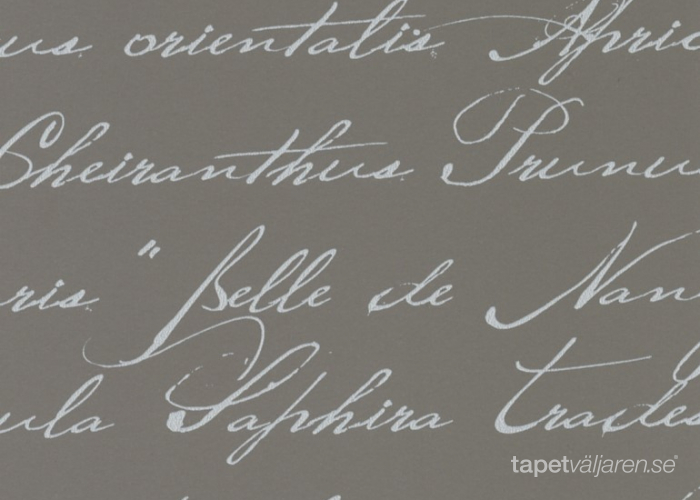 us. orientalis Afric
Cheiranthus. Prunu
ris. " Belle de Nan
ula Saphira trades
tapetväljaren.se®